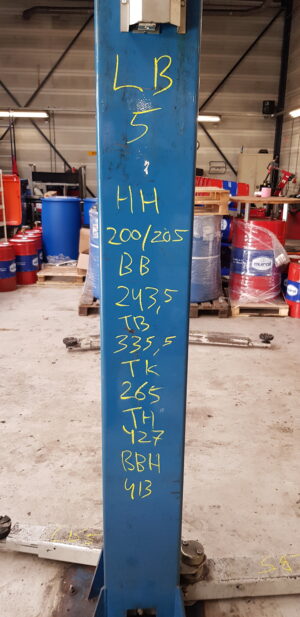 LB
5
HH
200/205
BB
243,5
TB
335,5
TK
265
TH
427
BBH
413